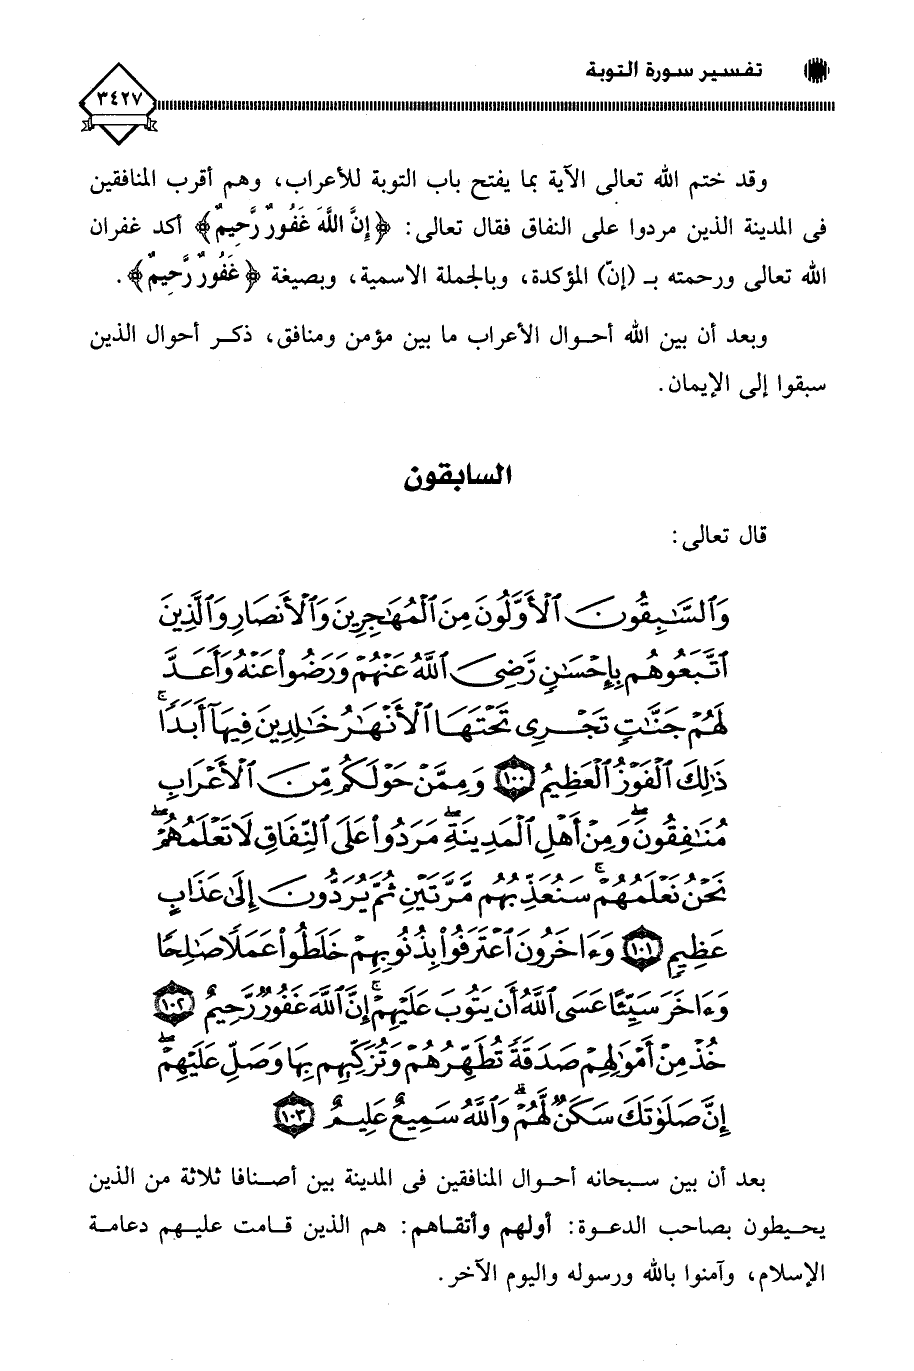 تفسير سورة التوبة
٣٤٢٧
وقد ختم الله تعالى الآية بما يفتح باب التوبة للأعراب، وهم أقرب المنافقين
فى المدينة الذين مردوا على النفاق فقال تعالى: ﴿إِنَّ اللَّهَ غَفُورٌ رَّحِيمٌ﴾ أكد غفران
الله تعالى ورحمته بـ (إنّ) المؤكدة، وبالجملة الاسمية، وبصيغة ﴿غَفُورٌ رَّحِيمٌ﴾.
وبعد أن بين الله أحـوال الأعراب ما بين مؤمن ومنافق، ذكـر أحوال الذين
سبقوا إلى الإيمان.
السابقون
قال تعالى:
وَٱلسَّـٰبِقُونَ ٱلْأَوَّلُونَ مِنَ ٱلْمُهَـٰجِرِينَ وَٱلْأَنصَارِ وَٱلَّذِينَ
ٱتَّبَعُوهُم بِإِحْسَـٰنٍ رَّضِىَ ٱللَّهُ عَنْهُمْ وَرَضُوا۟ عَنْهُ وَأَعَدَّ
لَهُمْ جَنَّـٰتٍ تَجْرِى تَحْتَهَا ٱلْأَنْهَـٰرُ خَـٰلِدِينَ فِيهَآ أَبَدًا ۚ
ذَٰلِكَ ٱلْفَوْزُ ٱلْعَظِيمُ ١٠٠ وَمِمَّنْ حَوْلَكُم مِّنَ ٱلْأَعْرَابِ
مُنَـٰفِقُونَ ۖ وَمِنْ أَهْلِ ٱلْمَدِينَةِ ۖ مَرَدُوا۟ عَلَى ٱلنِّفَاقِ لَا تَعْلَمُهُمْ ۖ
نَحْنُ نَعْلَمُهُمْ ۚ سَنُعَذِّبُهُم مَّرَّتَيْنِ ثُمَّ يُرَدُّونَ إِلَىٰ عَذَابٍ
عَظِيمٍ ١٠١ وَءَاخَرُونَ ٱعْتَرَفُوا۟ بِذُنُوبِهِمْ خَلَطُوا۟ عَمَلًا صَـٰلِحًا
وَءَاخَرَ سَيِّئًا عَسَى ٱللَّهُ أَن يَتُوبَ عَلَيْهِمْ ۚ إِنَّ ٱللَّهَ غَفُورٌ رَّحِيمٌ ١٠٢
خُذْ مِنْ أَمْوَٰلِهِمْ صَدَقَةً تُطَهِّرُهُمْ وَتُزَكِّيهِم بِهَا وَصَلِّ عَلَيْهِمْ ۖ
إِنَّ صَلَوٰتَكَ سَكَنٌ لَّهُمْ ۗ وَٱللَّهُ سَمِيعٌ عَلِيمٌ ١٠٣
بعد أن بين سـبحانه أحـوال المنافقين فى المدينة بين أصـنافا ثلاثة من الذين
يحـيطون بصاحب الدعـوة: أولهم وأتقـاهم: هم الذين قـامت عليـهم دعامـة
الإسلام، وآمنوا بالله ورسوله واليوم الآخر.